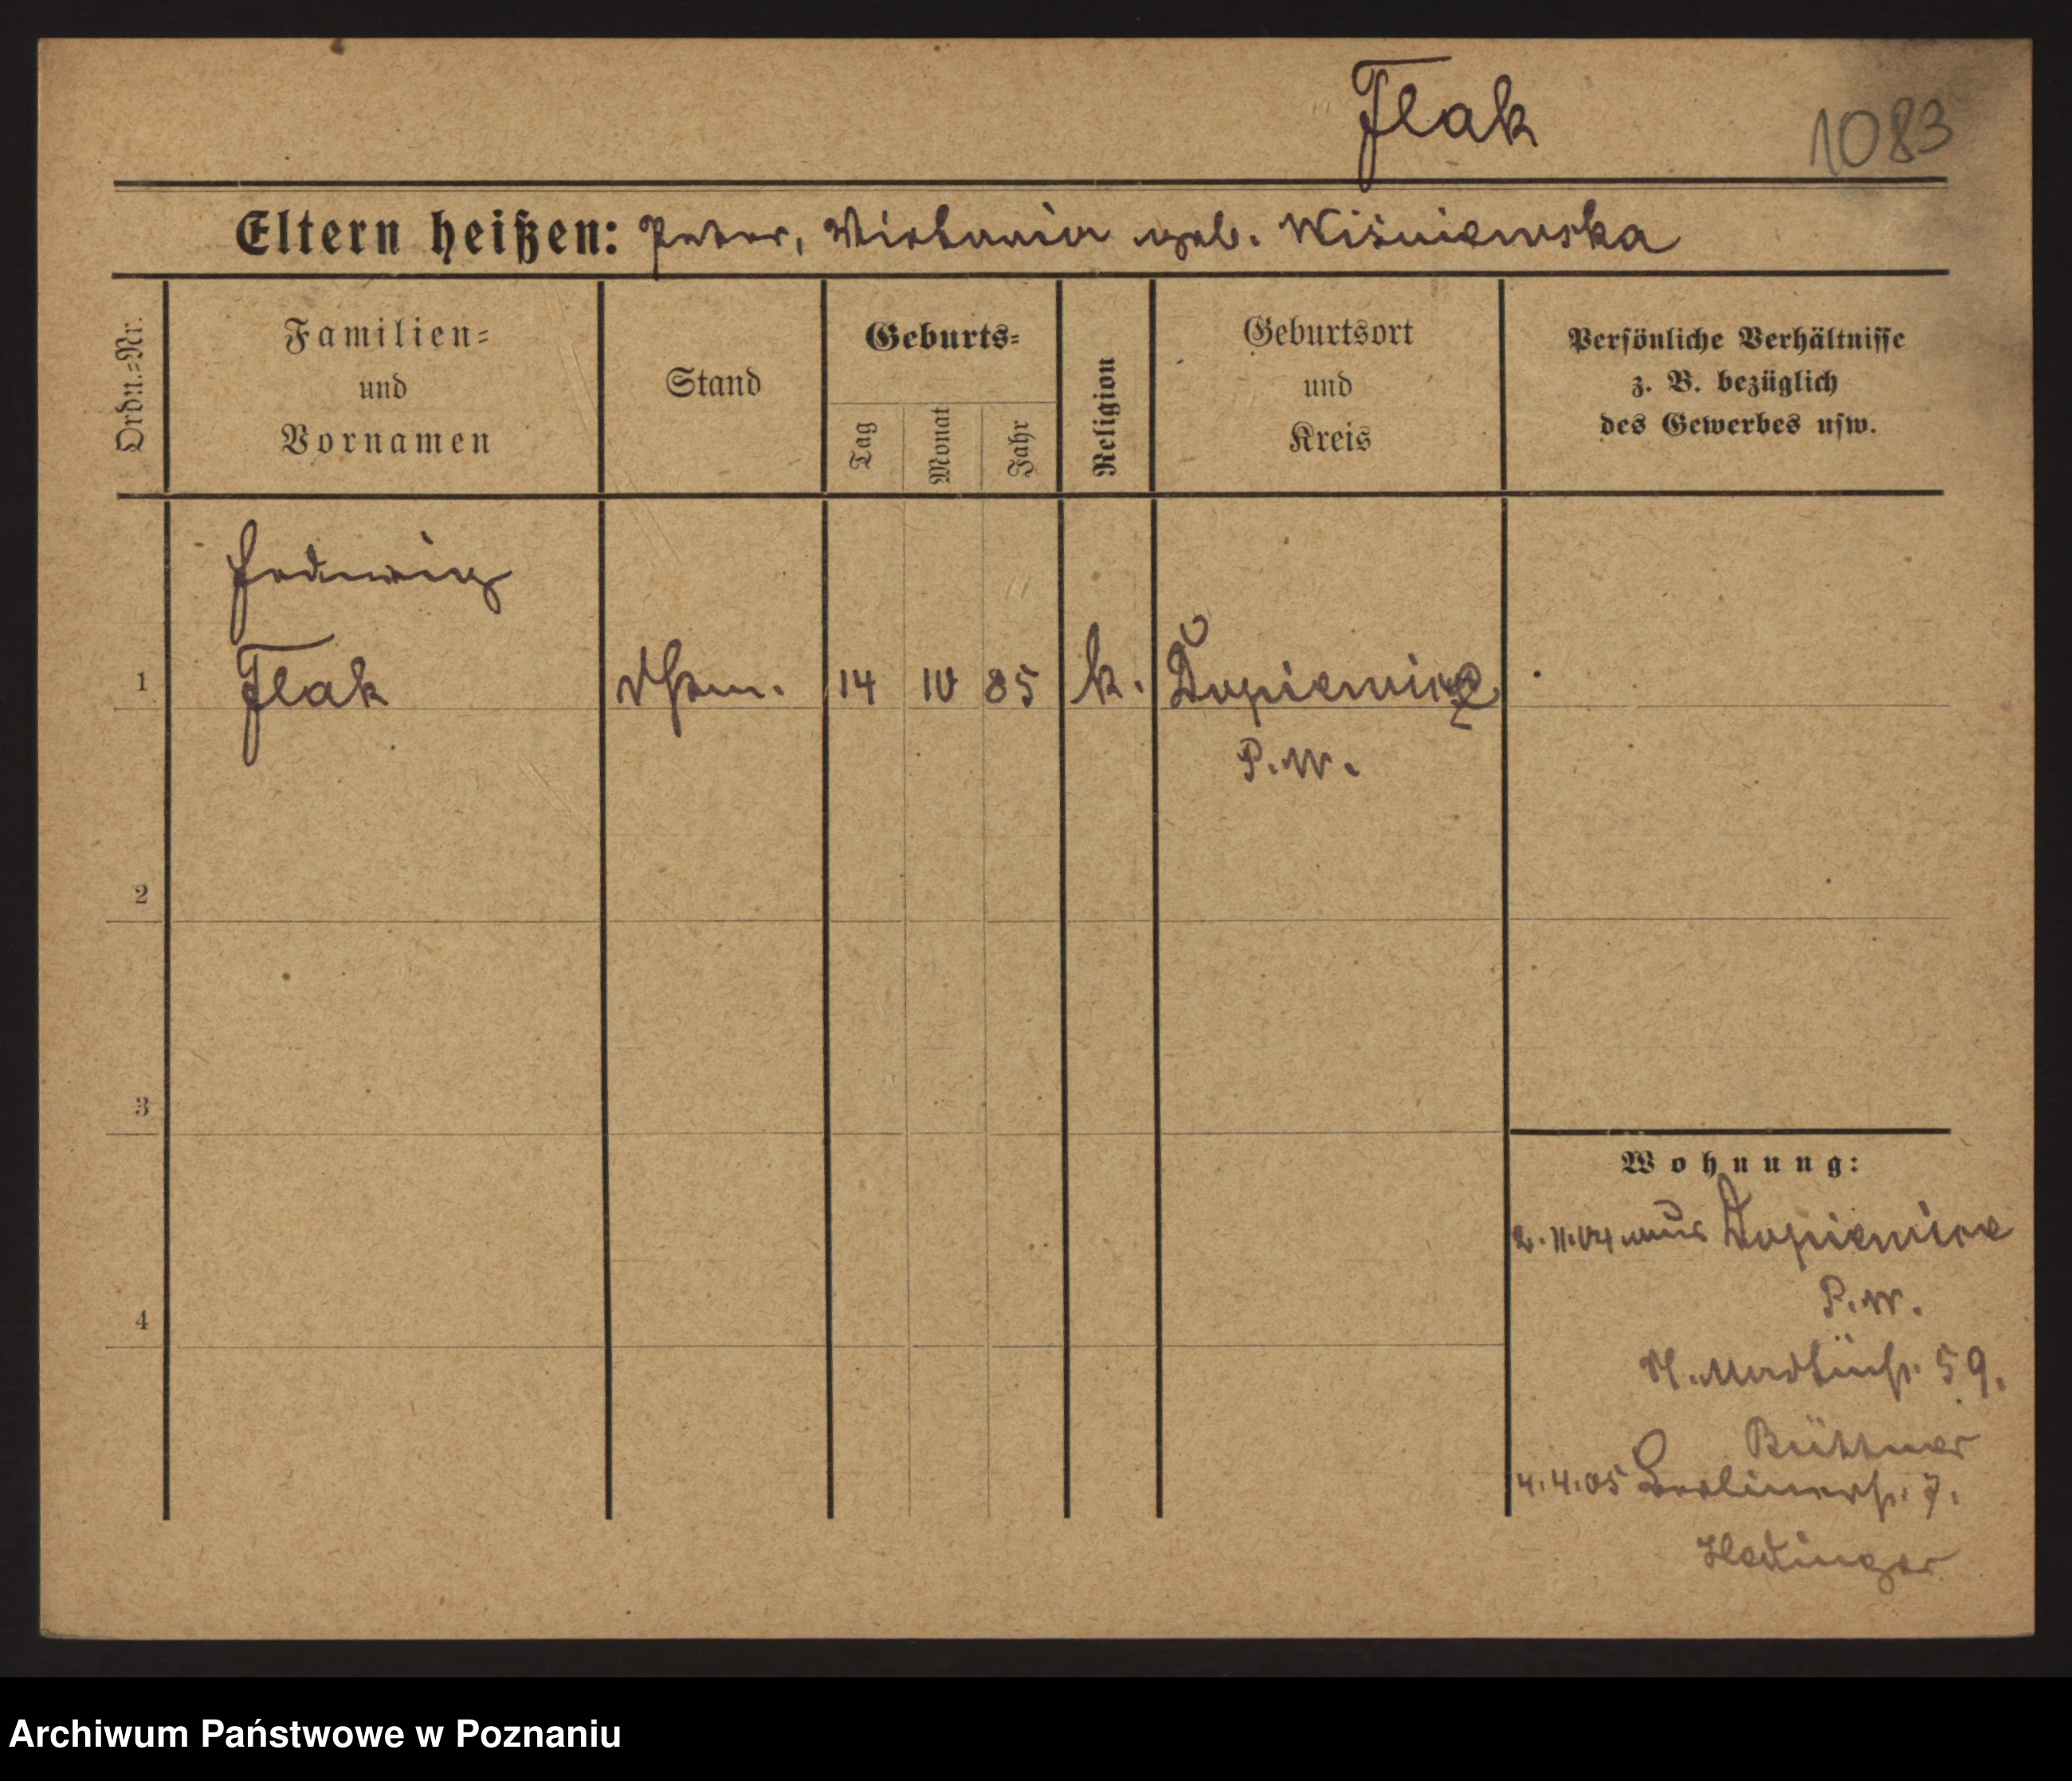 Flak
1083
Eltern heißen: Peter, Victoria geb. Wiśniewska
Ordn.=Nr.
Familien=
und
Vornamen
Stand
Geburts=
Tag
Monat
Jahr
Religion
Geburtsort
und
Kreis
Persönliche Verhältnisse
z. B. bezüglich
des Gewerbes usw.
Hedwig
1 Flak 14 10 85 k. Dopiewiec
P.W.
2
3
4
Wohnung:
2.11.04 aus Dopiewice
P.W.
59.
Büttner
4.4.05 Berlinerstr. 7.
Hedinger
Archiwum Państwowe w Poznaniu